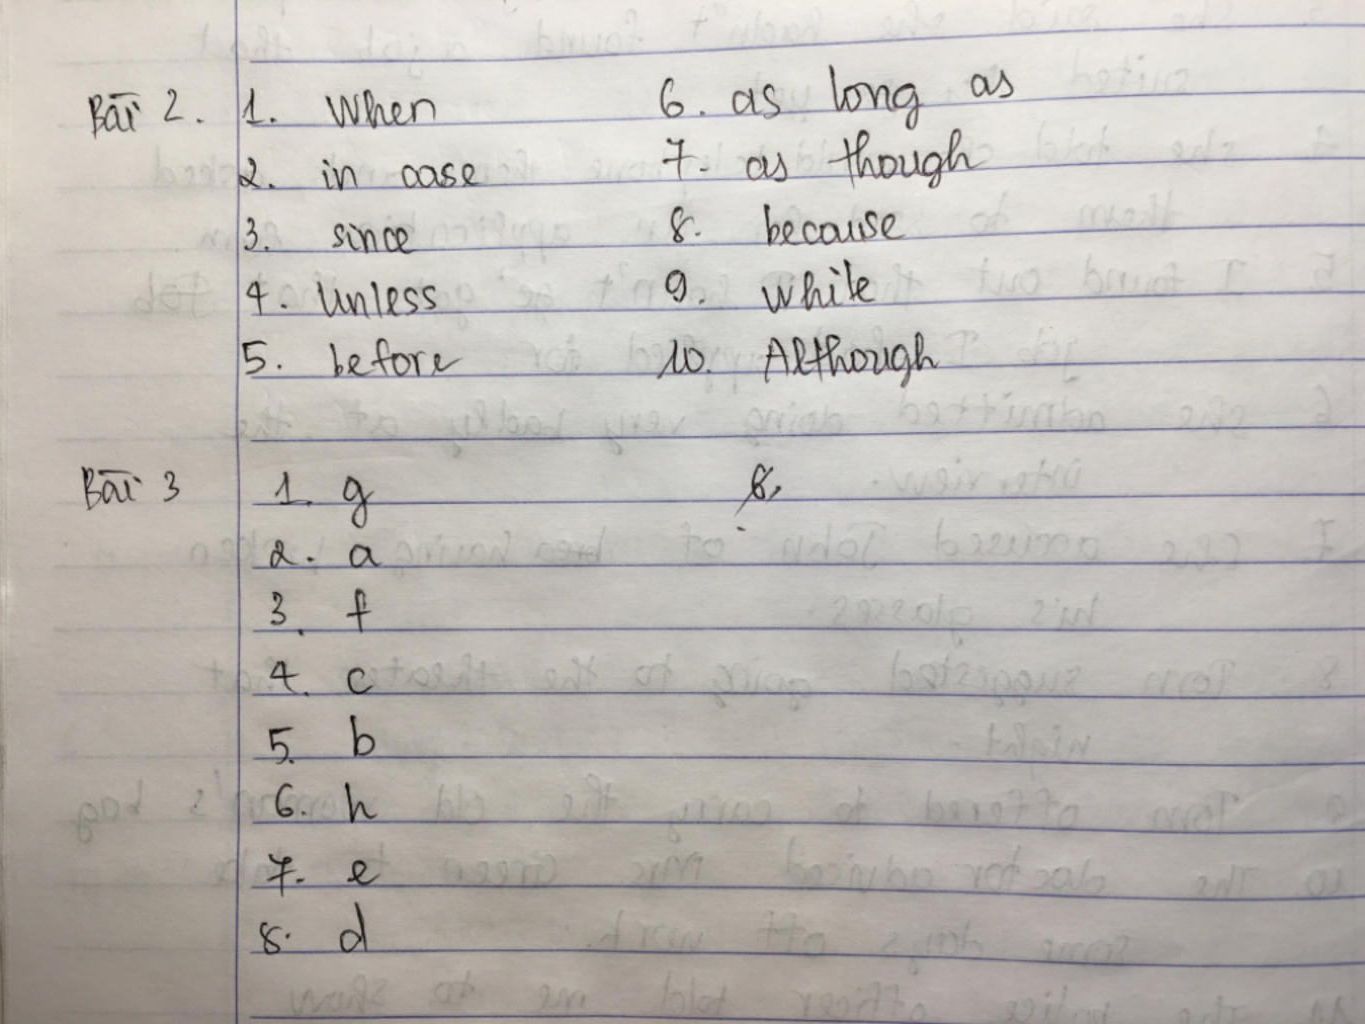 Bài 2. 1. When 6. as long as
2. in case 7. as though
3. since 8. because
4. Unless 9. while
5. before 10. Although
Bài 3 1. g
2. a
3. f
4. c
5. b
6. h
7. e
8. d